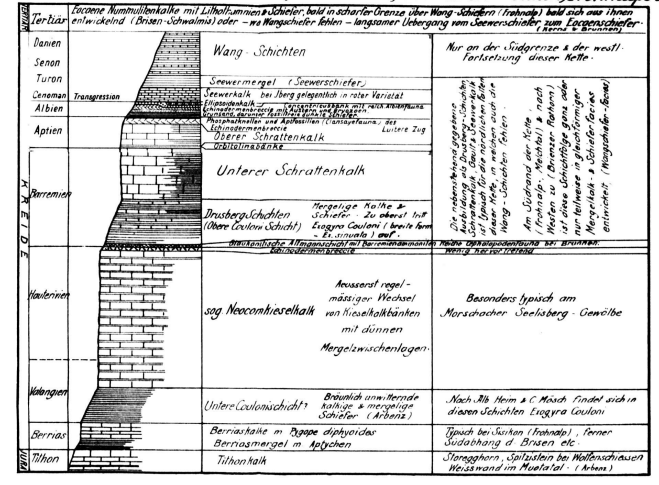 TERTIÄR
Tertiär
Eocaene Nummulitenkalke mit Lithothamnien & Schiefer, bald in scharfer Grenze über Wang-Schiefern (Frohnalp) bald sich aus ihnen
entwickelnd (Brisen-Schwalmis) oder - wo Wangschiefer fehlen - langsamer Uebergang vom Seewerschiefer zum Eocaenschiefer.
(Kerns & Brunnen)
KREIDE
Danien
Senon
Wang-Schichten
Nur an der Südgrenze & der westl.
Fortsetzung dieser Kette.
Turon
Seewermergel (Seewerschiefer)
Cenoman
Transgression
Seewerkalk bei Jberg gelegentlich in roter Varietät
Albien
Ellipsoidenkalk
Concentricusbank mit reich Albienfauna
Echinodermenbreccie mit Austern und Bryozoen
Grünsand, darunter fossilfreie dunkle Schiefer.
Aptien
Phosphatknollen und Aptfossilien (Clansayefauna) des
Echinodermenbreccie
Luitere Zug
Oberer Schrattenkalk
Orbitolinabänke
Barremien
Unterer Schrattenkalk
Drusberg Schichten
(Obere Couloni Schicht)
Mergelige Kalke &
Schiefer. Zu oberst tritt
Exogyra Couloni (breite Form
= Ex. sinuata) auf.
Die nebenstehend gegebene
Ausbildung als Drusberg-Schichten,
Schrattenkalk, Gault & Seewerkalk
ist typisch für die nördlichen Falten
dieser Kette, in welchen auch die
Wang-Schichten fehlen.
Am Südrand der Kette
(Frohnalp, Melchtal) & nach
Westen zu (Brienzer Rothorn)
ist diese Schichtfolge ganz oder
nur teilweise in gleichförmiger
Mergelkalk- & Schieferfacies
entwickelt (Wangschiefer-facies)
Glaukonitische Altmannschicht mit Barremienammoniten
Reiche Cephalopodenfauna bei Brunnen.
Echinodermenbreccie
Wenig hervortretend
Hauterivien
sog. Neocomkieselkalk
Aeusserst regel-
mässiger Wechsel
von Kieselkalkbänken
mit dünnen
Mergelzwischenlagen.
Besonders typisch am
Morschacher Seelisberg-Gewölbe
Valangien
Untere Coulonischicht?
Bräunlich anwitternde
kalkige & mergelige
Schiefer (Arbenz)
Nach Alb Heim & C Mösch findet sich in
diesen Schichten Exogyra Couloni
Berrias
Berriaskalke m Pygope diphyoides
Berriasmergel m Aptychen
Typisch bei Sisikon (Frohnalp), ferner
Südabhang d Brisen etc.
JURA
Tithon
Tithonkalk
Storegghorn, Spitzislein bei Wolfenschiessen
Weisswand im Muotatal. (Arbenz)